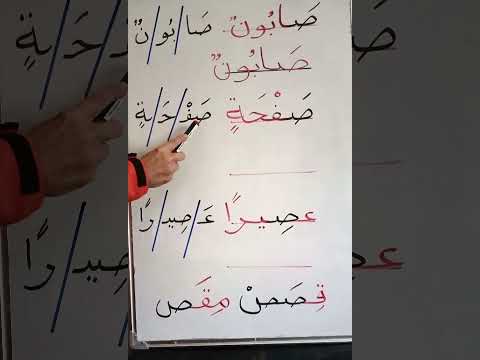 صَابُونٌ صَا/بُو/نٌ
صَابُونٌ
صَفْحَةٍ صَفْ/حَـ/ـةٍ
عصِيرًا عَـ/صِيـ/رًا
قِصَصْ مِقَص